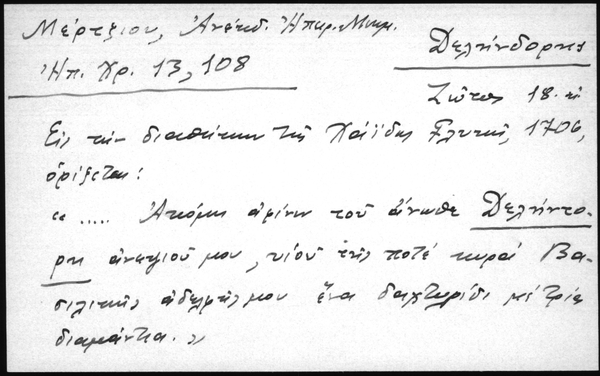 Μέρτζιου, Ἀνέκδ. Ἠπειρ. Μνημ.
Ἠπ. Χρ. 13, 108
Δεληνδόρης
18.
Εἰς τὴν διαθήκην τῆς Χάιδως Γλυκῆ, 1706,
ὁρίζεται:
«..... Ἀκόμη ἀφίνω τοῦ ἄνωθε Δεληντο-
ρη ἀνεψιοῦ μου, υἱοῦ τῆς ποτέ κυρά Βα-
σιλικῆς ἀδελφῆς μου ἕνα δαχτυλίδι μέ τρία
διαμάντια.»